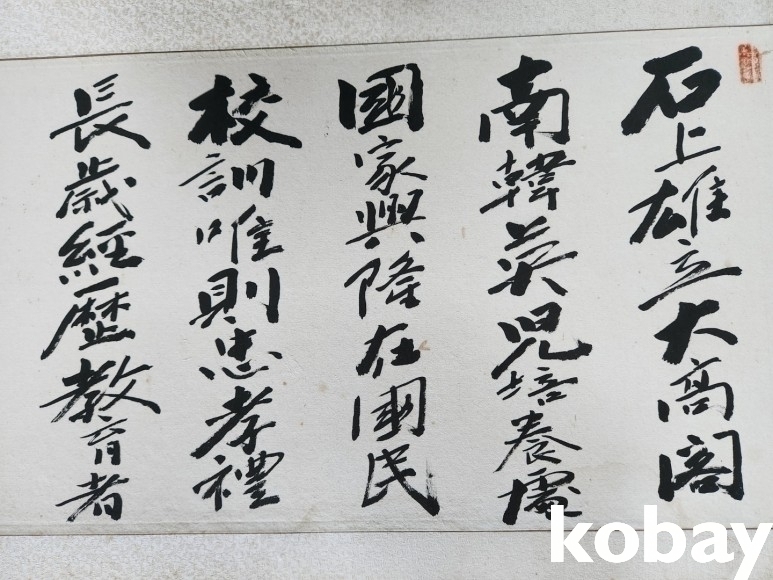 石上雄立大高閣
南韓英児培養壚
國家興隆在國民
校訓唯則忠孝禮
長歲經歷教育者
kobay